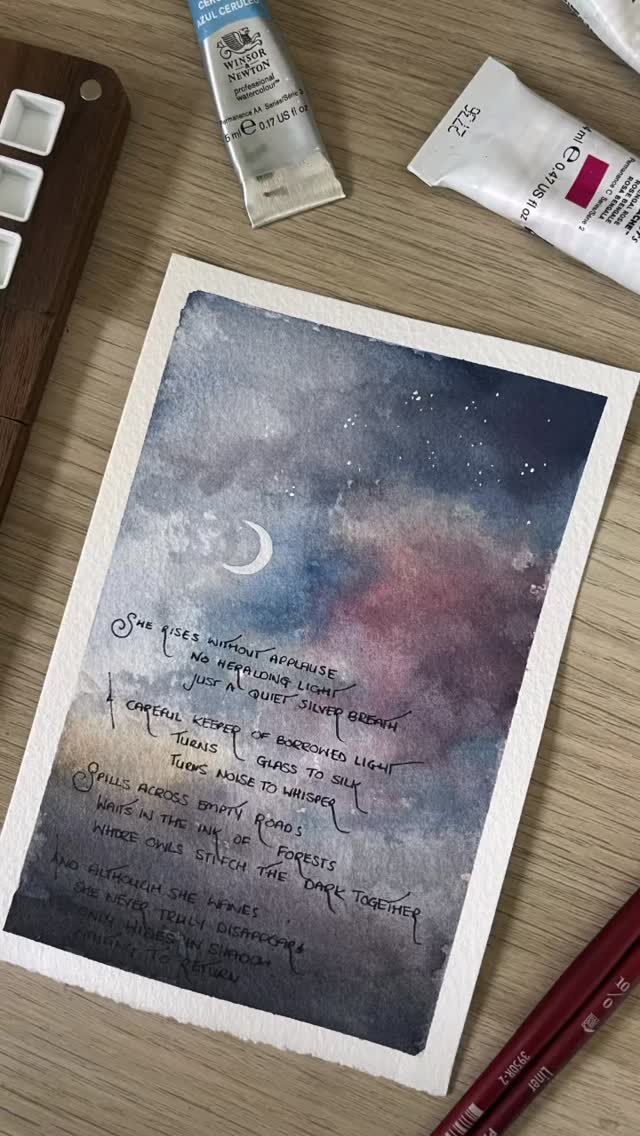 AZUL CERULEO
WINSOR
&
NEWTON
professional
watercolour™
Permanence AA Series/Série
5 ml e 0.17 US fl oz
e 0.47 US fl oz
BENGAL ROSE
ROSE BENGALE
ROSA BENGALA
Permanence C Series/Série 2
SHE RISES WITHOUT APPLAUSE
NO HERALDING LIGHT
JUST A QUIET SILVER BREATH
A CAREFUL KEEPER OF BORROWED LIGHT
TURNS GLASS TO SILK
TURNS NOISE TO WHISPER
SPILLS ACROSS EMPTY ROADS
WAITS IN THE INK OF FORESTS
WHERE OWLS STITCH THE DARK TOGETHER
AND ALTHOUGH SHE WANES
SHE NEVER TRULY DISAPPEARS
ONLY HIDES IN SHADOW
WAITING TO RETURN
10/0
Liner
3950R-2